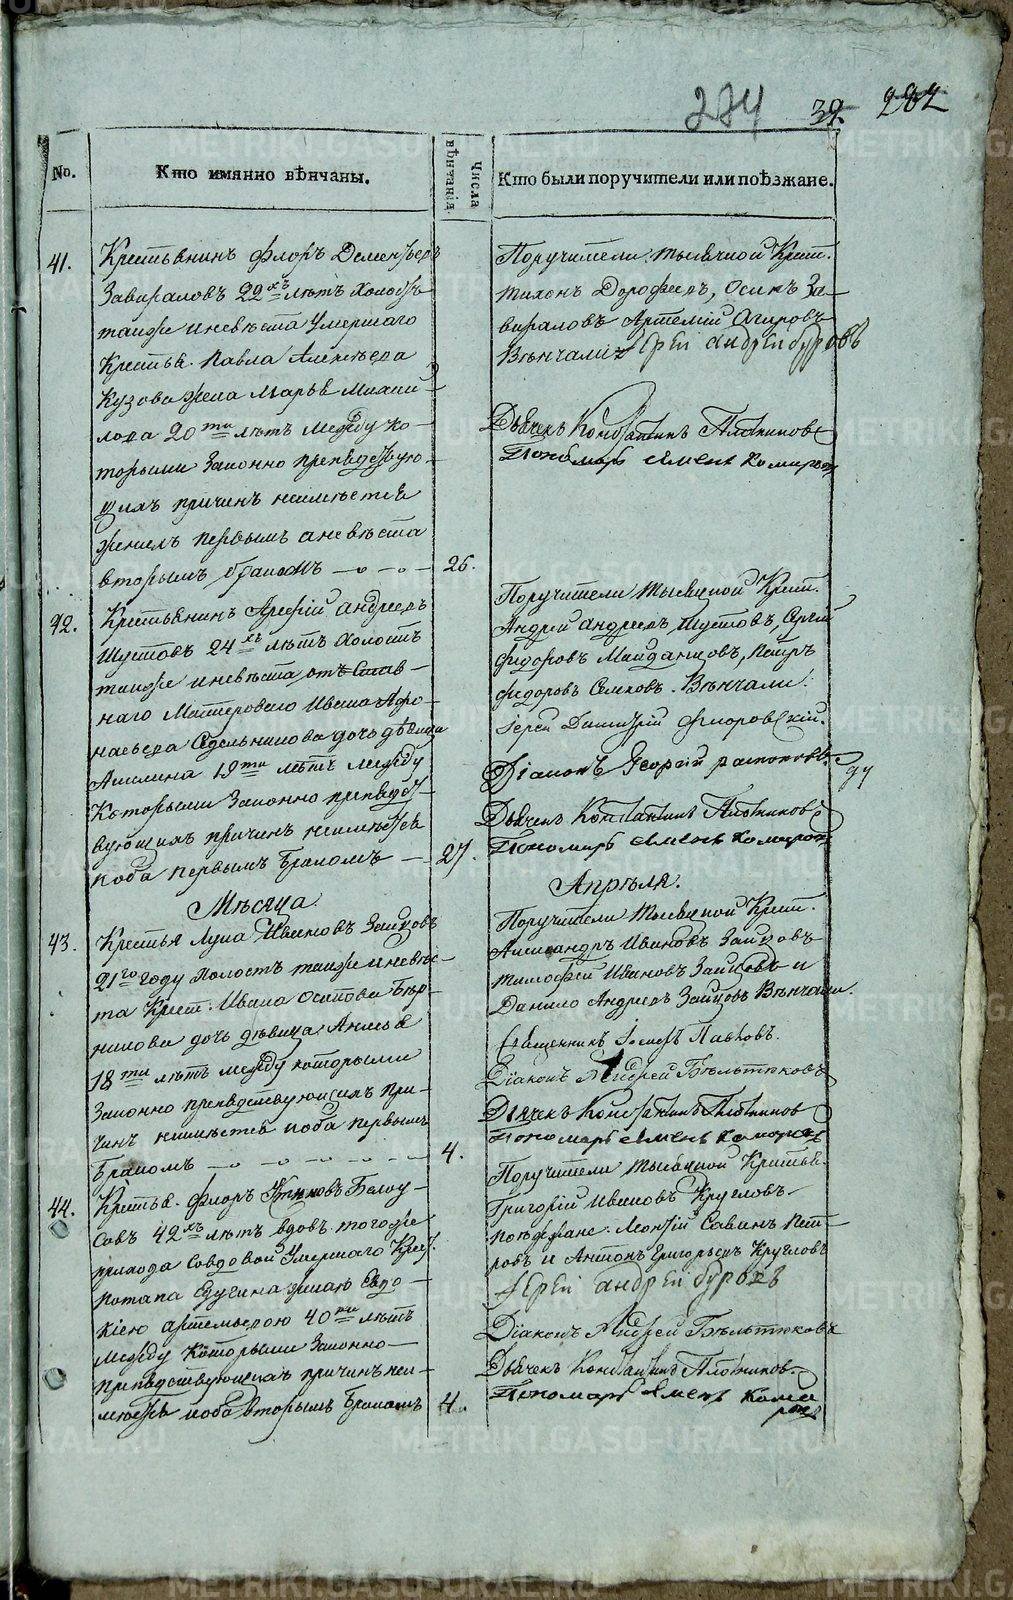 284 39. 282
No.
Кто имянно вѣнчаны.
Числа вѣнчанія
Кто были поручители или поѣзжане.
41.
Крестьянинъ Флоръ Дементьевъ
Завираловъ 22хъ лѣтъ холостъ
также и невѣста умершаго
Крестья. Павла Алексѣева
Кузова жена Марья
лова 20ти лѣтъ между ко-
торыми законно препядствую-
щихъ причинъ неимѣется
женихъ первымъ а невѣста
вторымъ бракомъ
26.
Поручители: тысячной Крест.
Тихонъ Дорофеевъ, Осипъ За-
вираловъ Артемій
Вѣнчали Іерей Андрей Буровъ
Дьячекъ Константинъ Плотниковъ
Пономарь Симеонъ Комаровъ
42.
Крестьянинъ Арефій Андреевъ
Шустовъ 24хъ лѣтъ холостъ
также и невѣста отъ Став-
наго Мастероваго Ивана Афо-
насьева Седельникова дочь дѣвица
Акилина 19ти лѣтъ между
Которыми Законно препядст-
вующихъ причинъ неимѣется
иоба первымъ Бракомъ
27.
Поручители тысяцкой Крест.
Андрей Андреевъ Шустовъ, Сергей
Федоровъ Майданцовъ, Петръ
Федоровъ Семковъ. Вѣнчали:
Іерей Димитрій Флоровскій.
Діаконъ Георгій
Дьячекъ Константинъ Плотниковъ
Пономарь Симеонъ Комаровъ
Мѣсяца
Апрѣля.
43.
Крестья Лука Ивановъ Зайковъ
21го году холостъ также и невѣс-
та Крест. Ивана Осипова Бер-
никова дочь дѣвица Анисья
18ти лѣтъ между которыми
Законно препядствующихъ при-
чинъ неимѣется иоба первымъ
Бракомъ
4.
Поручители тысяцкой Крест.
Александръ Ивановъ Зайковъ
Тимофей Ивановъ Зайковъ и
Данило Андреевъ Зайцовъ Вѣнчали.
Священникъ Іосифъ Павловъ.
Діаконъ Андрей Бѣльтюковъ
Дьячекъ Константинъ Плотниковъ
Пономарь Симеонъ Комаровъ
44.
Крестья. Флоръ Белоу-
совъ 42хъ лѣтъ вдовъ тогоже
прихода совдовой Умершаго Крест.
Потапа женою Евдо-
кіею Артемьевою 40ти лѣтъ
между Которыми Законно-
препядствующихъ причинъ неи-
мѣется иоба вторымъ Бракомъ
4.
Поручители тысячной Крестья.
Григорій Ивановъ Кругловъ
поѣзжане. Савинъ Пет-
ровъ и Антонъ Григорьевъ Кругловъ
Іерей Андрей Буровъ
Діаконъ Андрей Бѣльтюковъ
Дьячекъ Константинъ Плотниковъ.
Пономарь Симеонъ Кома
ровъ
METRIKI.GASO-URAL.RU